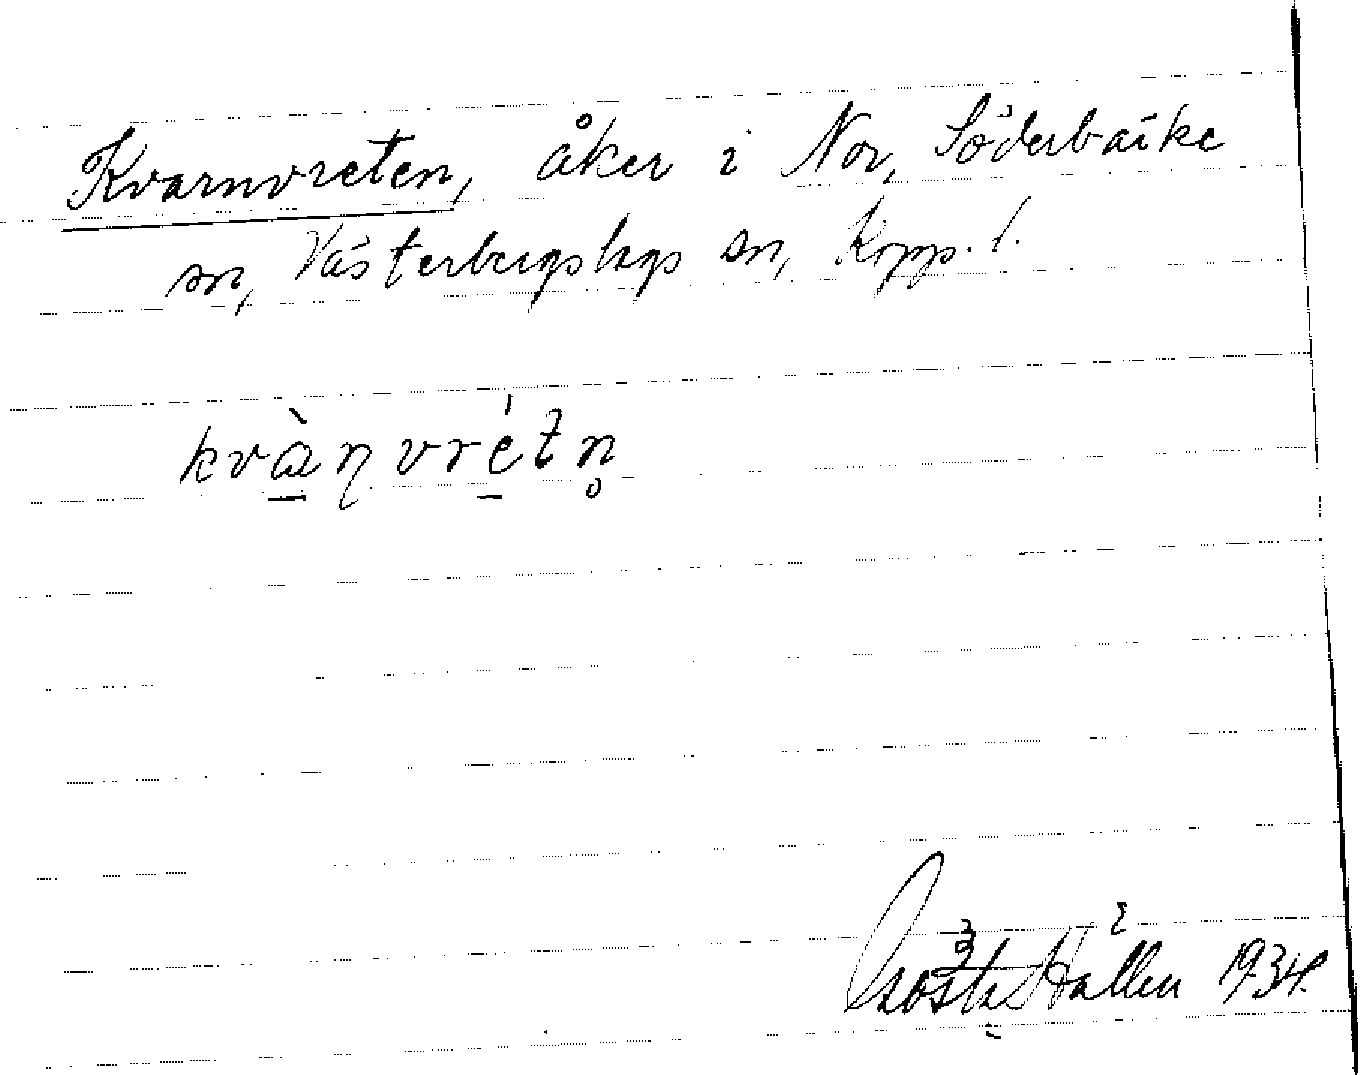 Kvarnvreten, åker i Nor, Söderbärke
sn, Västerbergslags sn, Kopp. l.
kvànvrétn̥
Gösta Hallen 1934.